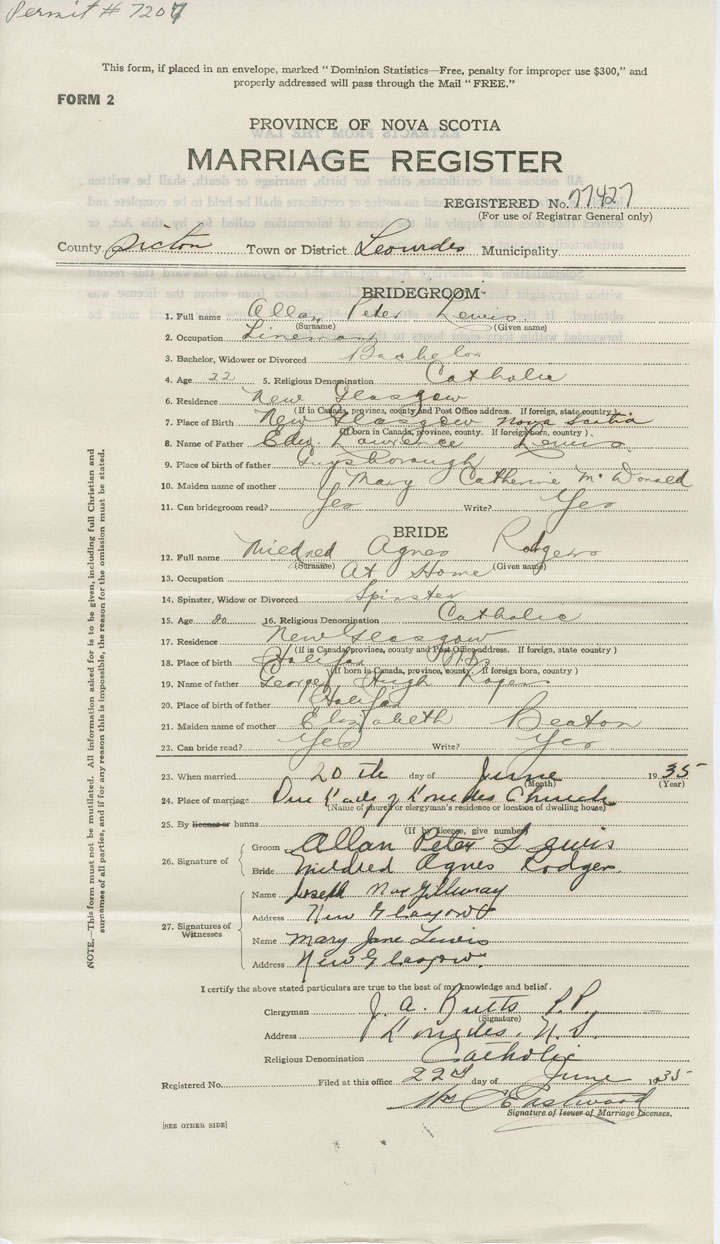 Permit # 7207
This form, if placed in an envelope, marked "Dominion Statistics—Free, penalty for improper use $300," and
properly addressed will pass through the Mail "FREE."
FORM 2
PROVINCE OF NOVA SCOTIA
MARRIAGE REGISTER
REGISTERED No. 77427
(For use of Registrar General only)
County Pictou Town or District Leourdes Municipality
BRIDEGROOM
1. Full name Allan Peter Lewis
(Surname) (Given name)
2. Occupation Lineman
3. Bachelor, Widower or Divorced Bachelor
4. Age 22 5. Religious Denomination Catholic
6. Residence New Glasgow
(If in Canada, province, county and Post Office address. If foreign, state country)
7. Place of Birth New Glasgow Nova Scotia
(If born in Canada, province, county. If foreign born, country)
8. Name of Father Edw. Lawrence Lewis
9. Place of birth of father Guysborough
10. Maiden name of mother Mary Catherine McDonald
11. Can bridegroom read? Yes Write? Yes
BRIDE
12. Full name Mildred Agnes Rodgers
(Surname) (Given name)
13. Occupation At Home
14. Spinster, Widow or Divorced Spinster
15. Age 20 16. Religious Denomination Catholic
17. Residence New Glasgow
(If in Canada, province, county and Post Office address. If foreign, state country)
18. Place of birth Halifax N.S.
(If born in Canada, province, county. If foreign born, country)
19. Name of father George Hugh Rogers
20. Place of birth of father Halifax
21. Maiden name of mother Elizabeth Beaton
22. Can bride read? Yes Write? Yes
23. When married 20th day of June 1935
(Month) (Year)
24. Place of marriage Our Lady of Lourdes Church
(Name of church or clergyman's residence or location of dwelling house)
25. By license or banns
(If by license, give number)
26. Signature of
Groom Allan Peter Lewis
Bride Mildred Agnes Rodgers
27. Signatures of Witnesses
Name Joseph MacGillivray
Address New Glasgow
Name Mary Jane Lewis
Address New Glasgow
I certify the above stated particulars are true to the best of my knowledge and belief.
Clergyman J. A. Butts P.P.
(Signature)
Address Lourdes. N.S.
Religious Denomination Catholic
Registered No. Filed at this office 22nd day of June 1935
Eastwood
Signature of Issuer of Marriage Licenses.
[SEE OTHER SIDE]
NOTE.—This form must not be mutilated. All information asked for is to be given, including full Christian and
surnames of all parties, and if for any reason this is impossible, the reason for the omission must be stated.